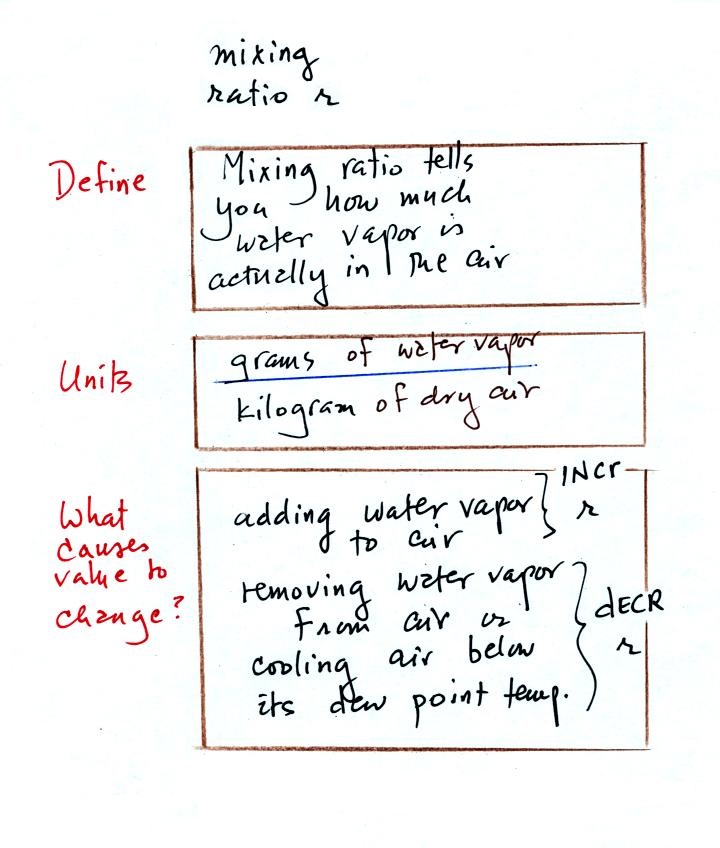 mixing
ratio r
Define
Mixing ratio tells
you how much
water vapor is
actually in the air
Units
grams of water vapor
kilogram of dry air
What
causes
value to
change?
adding water vapor
to air
INCr
r
removing water vapor
from air or
cooling air below
its dew point temp.
dECR
r